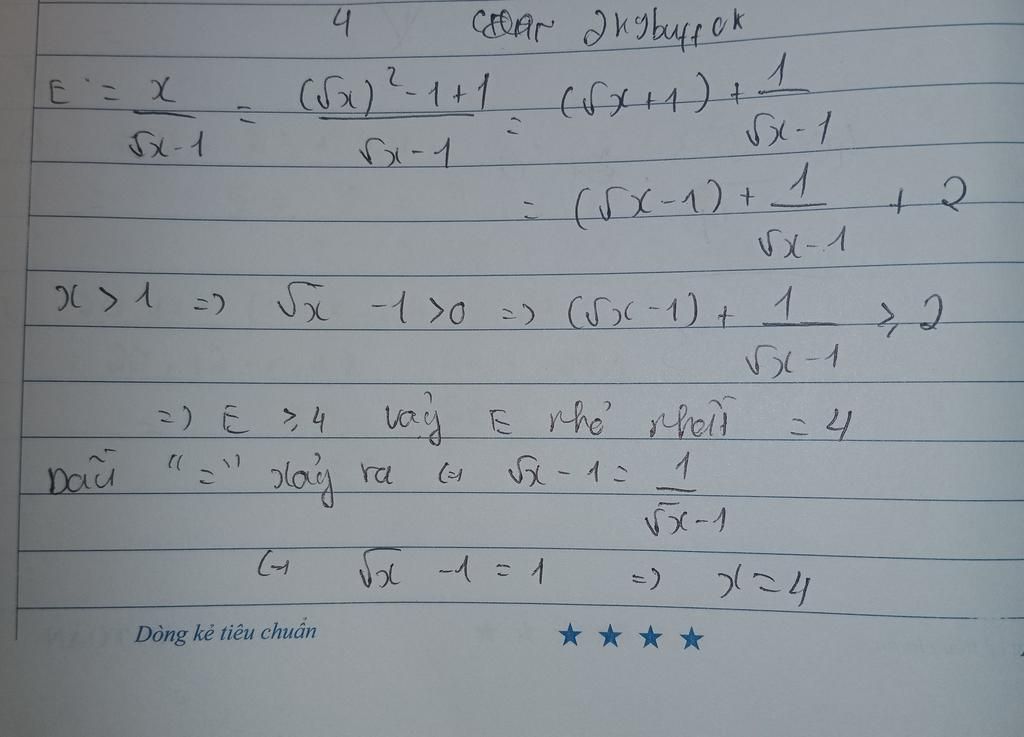 4
E = x/(√x-1) = ((√x)²-1+1)/(√x-1) = (√x+1) + 1/(√x-1)
= (√x-1) + 1/(√x-1) + 2
x > 1 => √x -1 > 0 => (√x-1) + 1/(√x-1) ≥ 2
=> E ≥ 4 vậy E nhỏ nhất = 4
Dấu "=" xảy ra <=> √x - 1 = 1/(√x-1)
<=> √x - 1 = 1 => x = 4
Dòng kẻ tiêu chuẩn